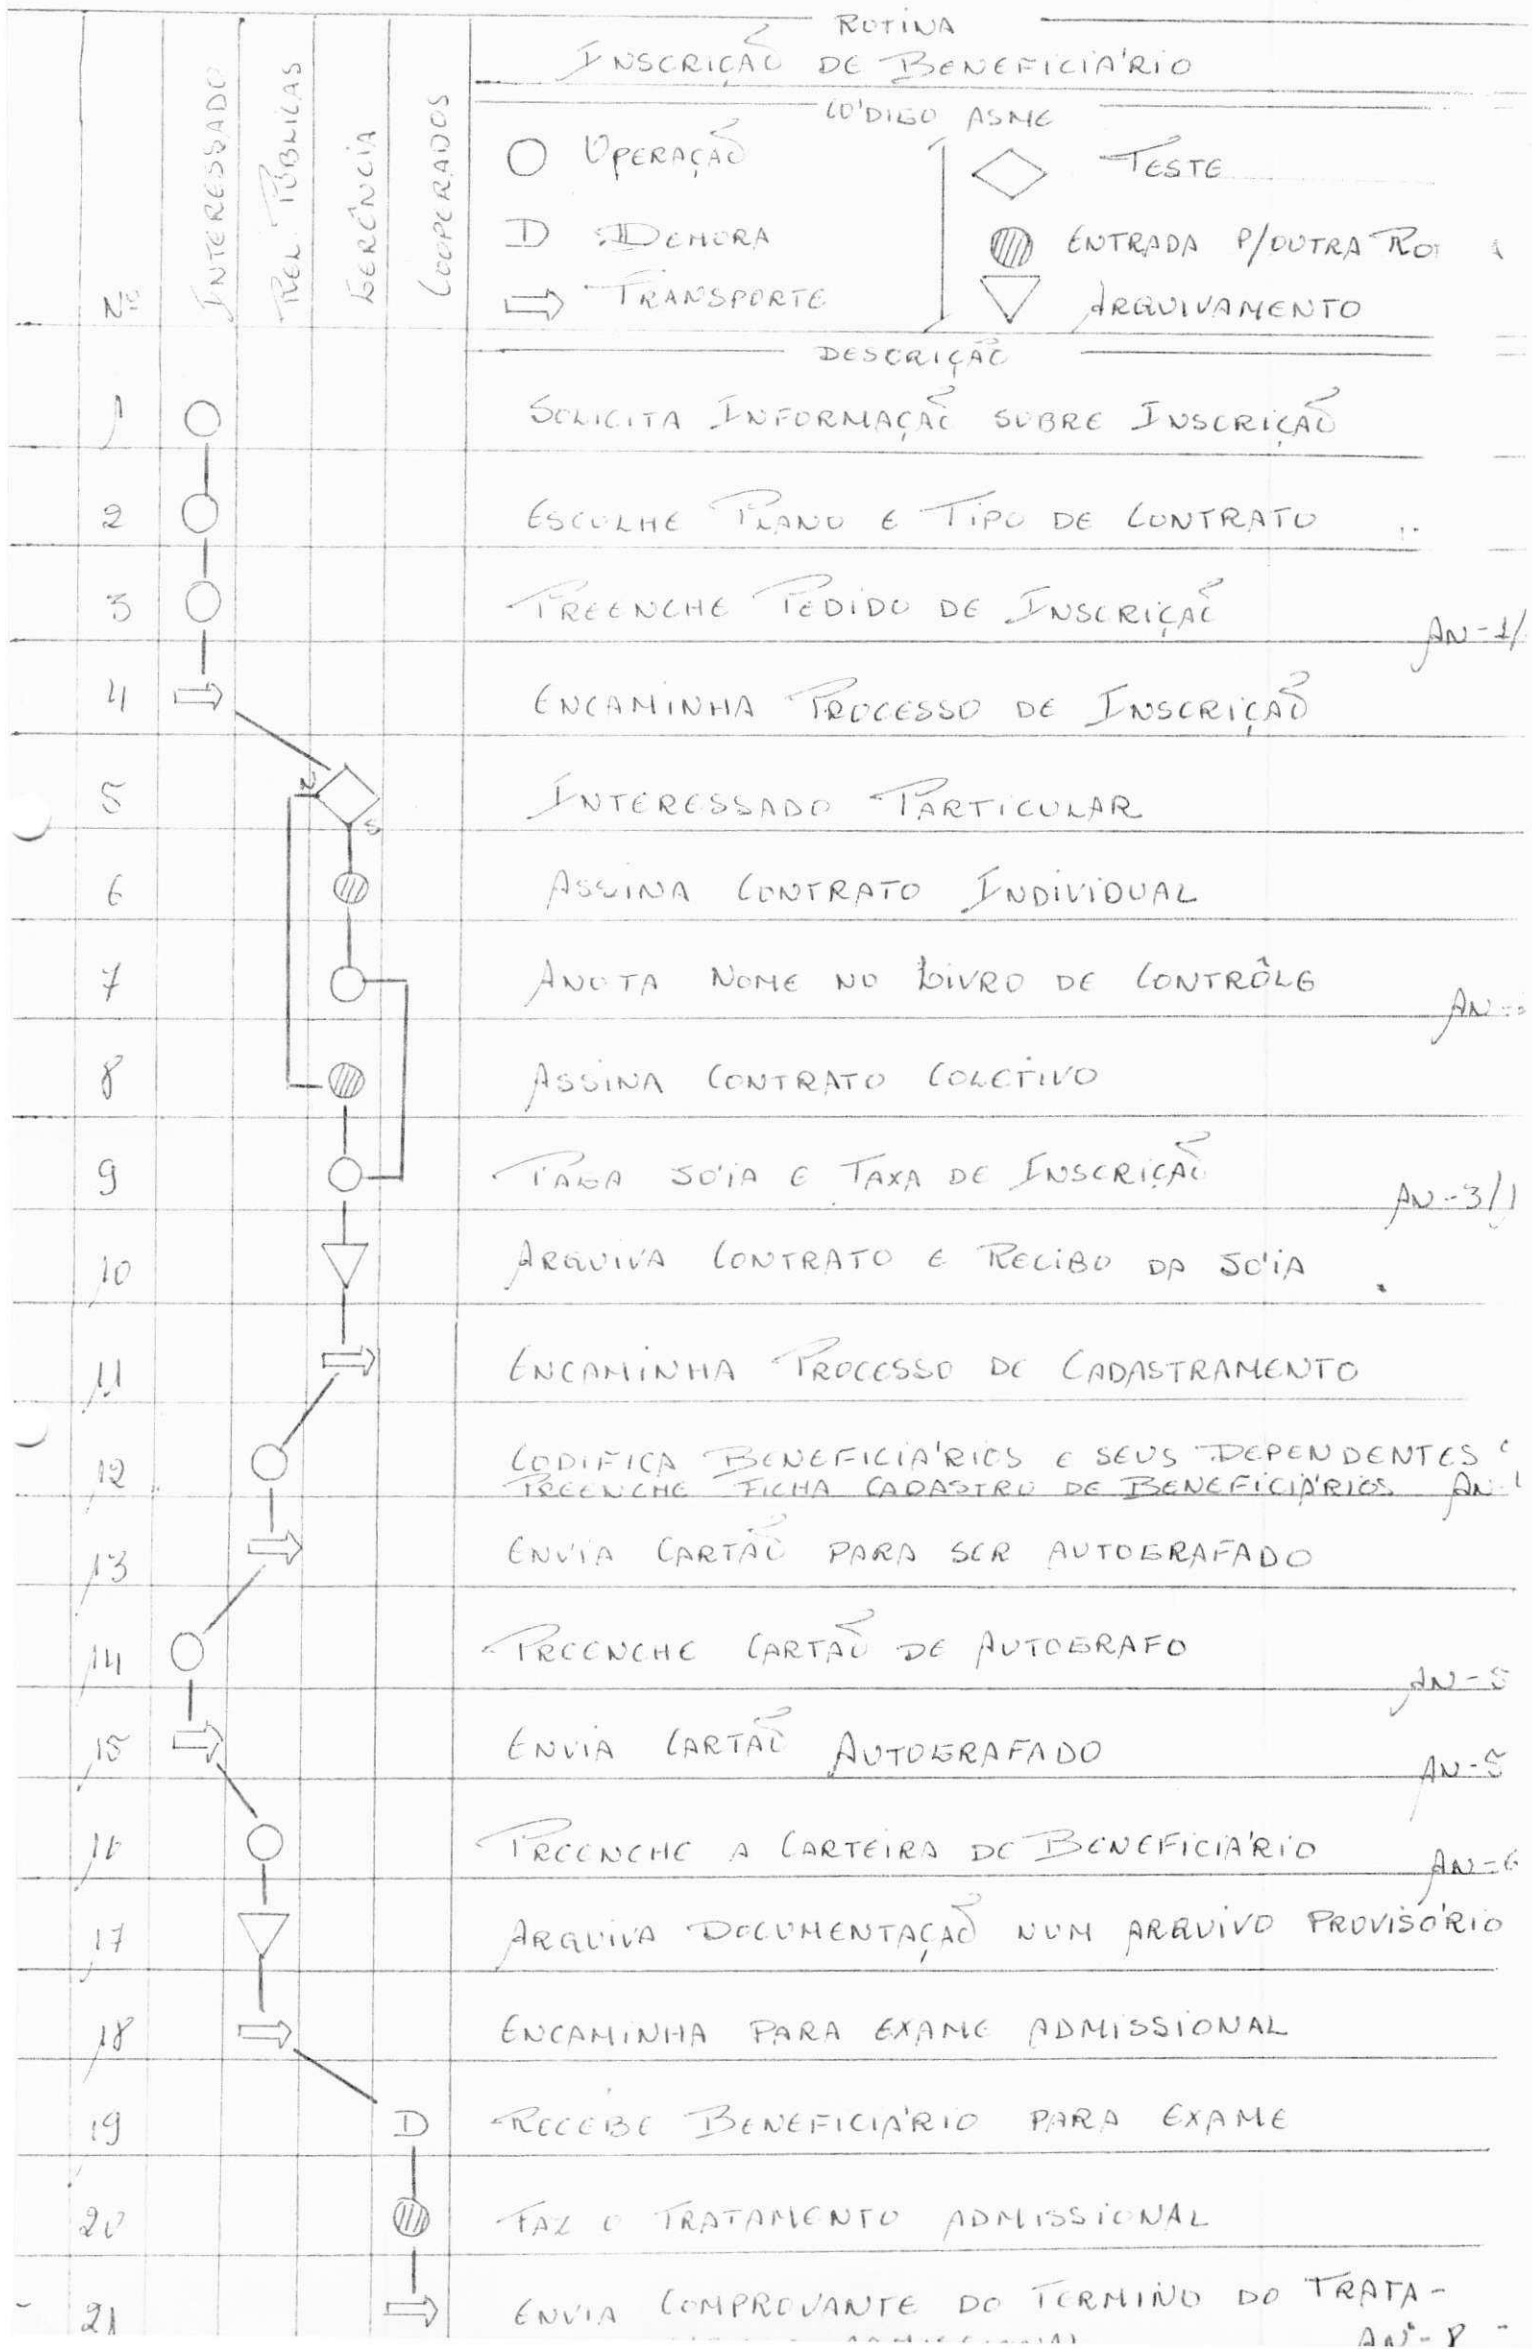 ROTINA
INSCRIÇÃO DE BENEFICIÁRIO
CÓDIGO ASME
Nº
INTERESSADO
REL. PÚBLICAS
GERÊNCIA
COOPERADOS
OPERAÇÃO
TESTE
DEMORA
ENTRADA P/OUTRA
TRANSPORTE
ARQUIVAMENTO
DESCRIÇÃO
1 SOLICITA INFORMAÇÃO SOBRE INSCRIÇÃO
2 ESCOLHE PLANO E TIPO DE CONTRATO
3 PREENCHE PEDIDO DE INSCRIÇÃO AN-1/
4 ENCAMINHA PROCESSO DE INSCRIÇÃO
N
5 INTERESSADO PARTICULAR
S
6 ASSINA CONTRATO INDIVIDUAL
7 ANOTA NOME NO LIVRO DE CONTRÔLE
AN-
8 ASSINA CONTRATO COLETIVO
9 PAGA JÓIA E TAXA DE INSCRIÇÃO
AN-3/1
10 ARQUIVA CONTRATO E RECIBO DA JÓIA
11 ENCAMINHA PROCESSO DE CADASTRAMENTO
12 CODIFICA BENEFICIÁRIOS E SEUS DEPENDENTES
PREENCHE FICHA CADASTRO DE BENEFICIÁRIOS AN-
13 ENVIA CARTÃO PARA SER AUTOGRAFADO
14 PREENCHE CARTÃO DE AUTOGRAFO
AN-5
15 ENVIA CARTÃO AUTOGRAFADO
AN-5
16 PREENCHE A CARTEIRA DE BENEFICIÁRIO
AN-6
17 ARQUIVA DOCUMENTAÇÃO NUM ARQUIVO PROVISÓRIO
18 ENCAMINHA PARA EXAME ADMISSIONAL
19 D RECEBE BENEFICIÁRIO PARA EXAME
20 FAZ O TRATAMENTO ADMISSIONAL
21 ENVIA COMPROVANTE DO TERMINO DO TRATA-
AN-8